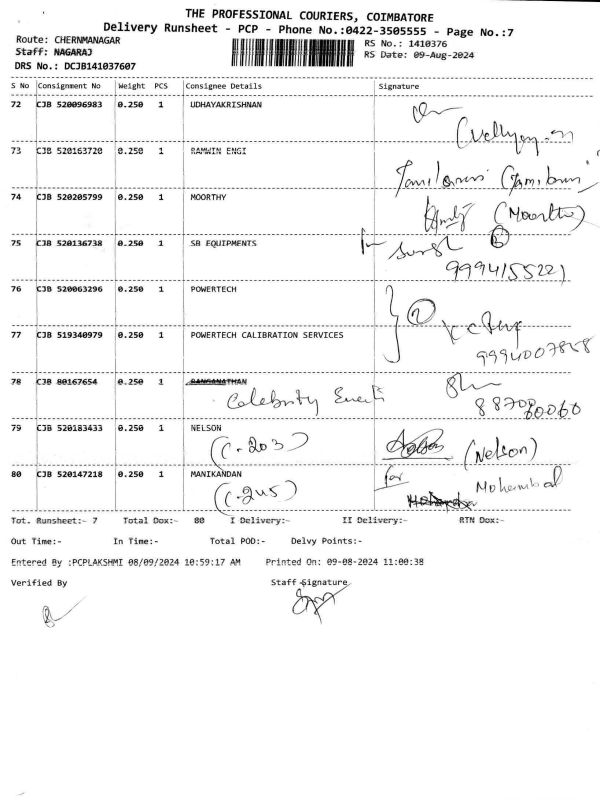 THE PROFESSIONAL COURIERS, COIMBATORE
Delivery Runsheet - PCP - Phone No.:0422-3505555 - Page No.:7
Route: CHERNMANAGAR
RS No.: 1410376
Staff: NAGARAJ
RS Date: 09-Aug-2024
DRS No.: DCJB141037607
S No Consignment No Weight PCS Consignee Details Signature
72 CJB 520096983 0.250 1 UDHAYAKRISHNAN
73 CJB 520163720 0.250 1 RAMWIN ENGI
74 CJB 520205799 0.250 1 MOORTHY
(Moorthi)
75 CJB 520136738 0.250 1 SB EQUIPMENTS
9994155221
76 CJB 520063296 0.250 1 POWERTECH
2
77 CJB 519340979 0.250 1 POWERTECH CALIBRATION SERVICES
78 CJB 80167654 0.250 1 RANGANATHAN
Celebrity
79 CJB 520183433 0.250 1 NELSON
(C-203)
(Nelson)
80 CJB 520147218 0.250 1 MANIKANDAN
(C-205)
for
Tot. Runsheet:- 7 Total Dox:- 80 I Delivery:- II Delivery:- RTN Dox:-
Out Time:- In Time:- Total POD:- Delvy Points:-
Entered By :PCPLAKSHMI 08/09/2024 10:59:17 AM Printed On: 09-08-2024 11:00:38
Verified By Staff Signature